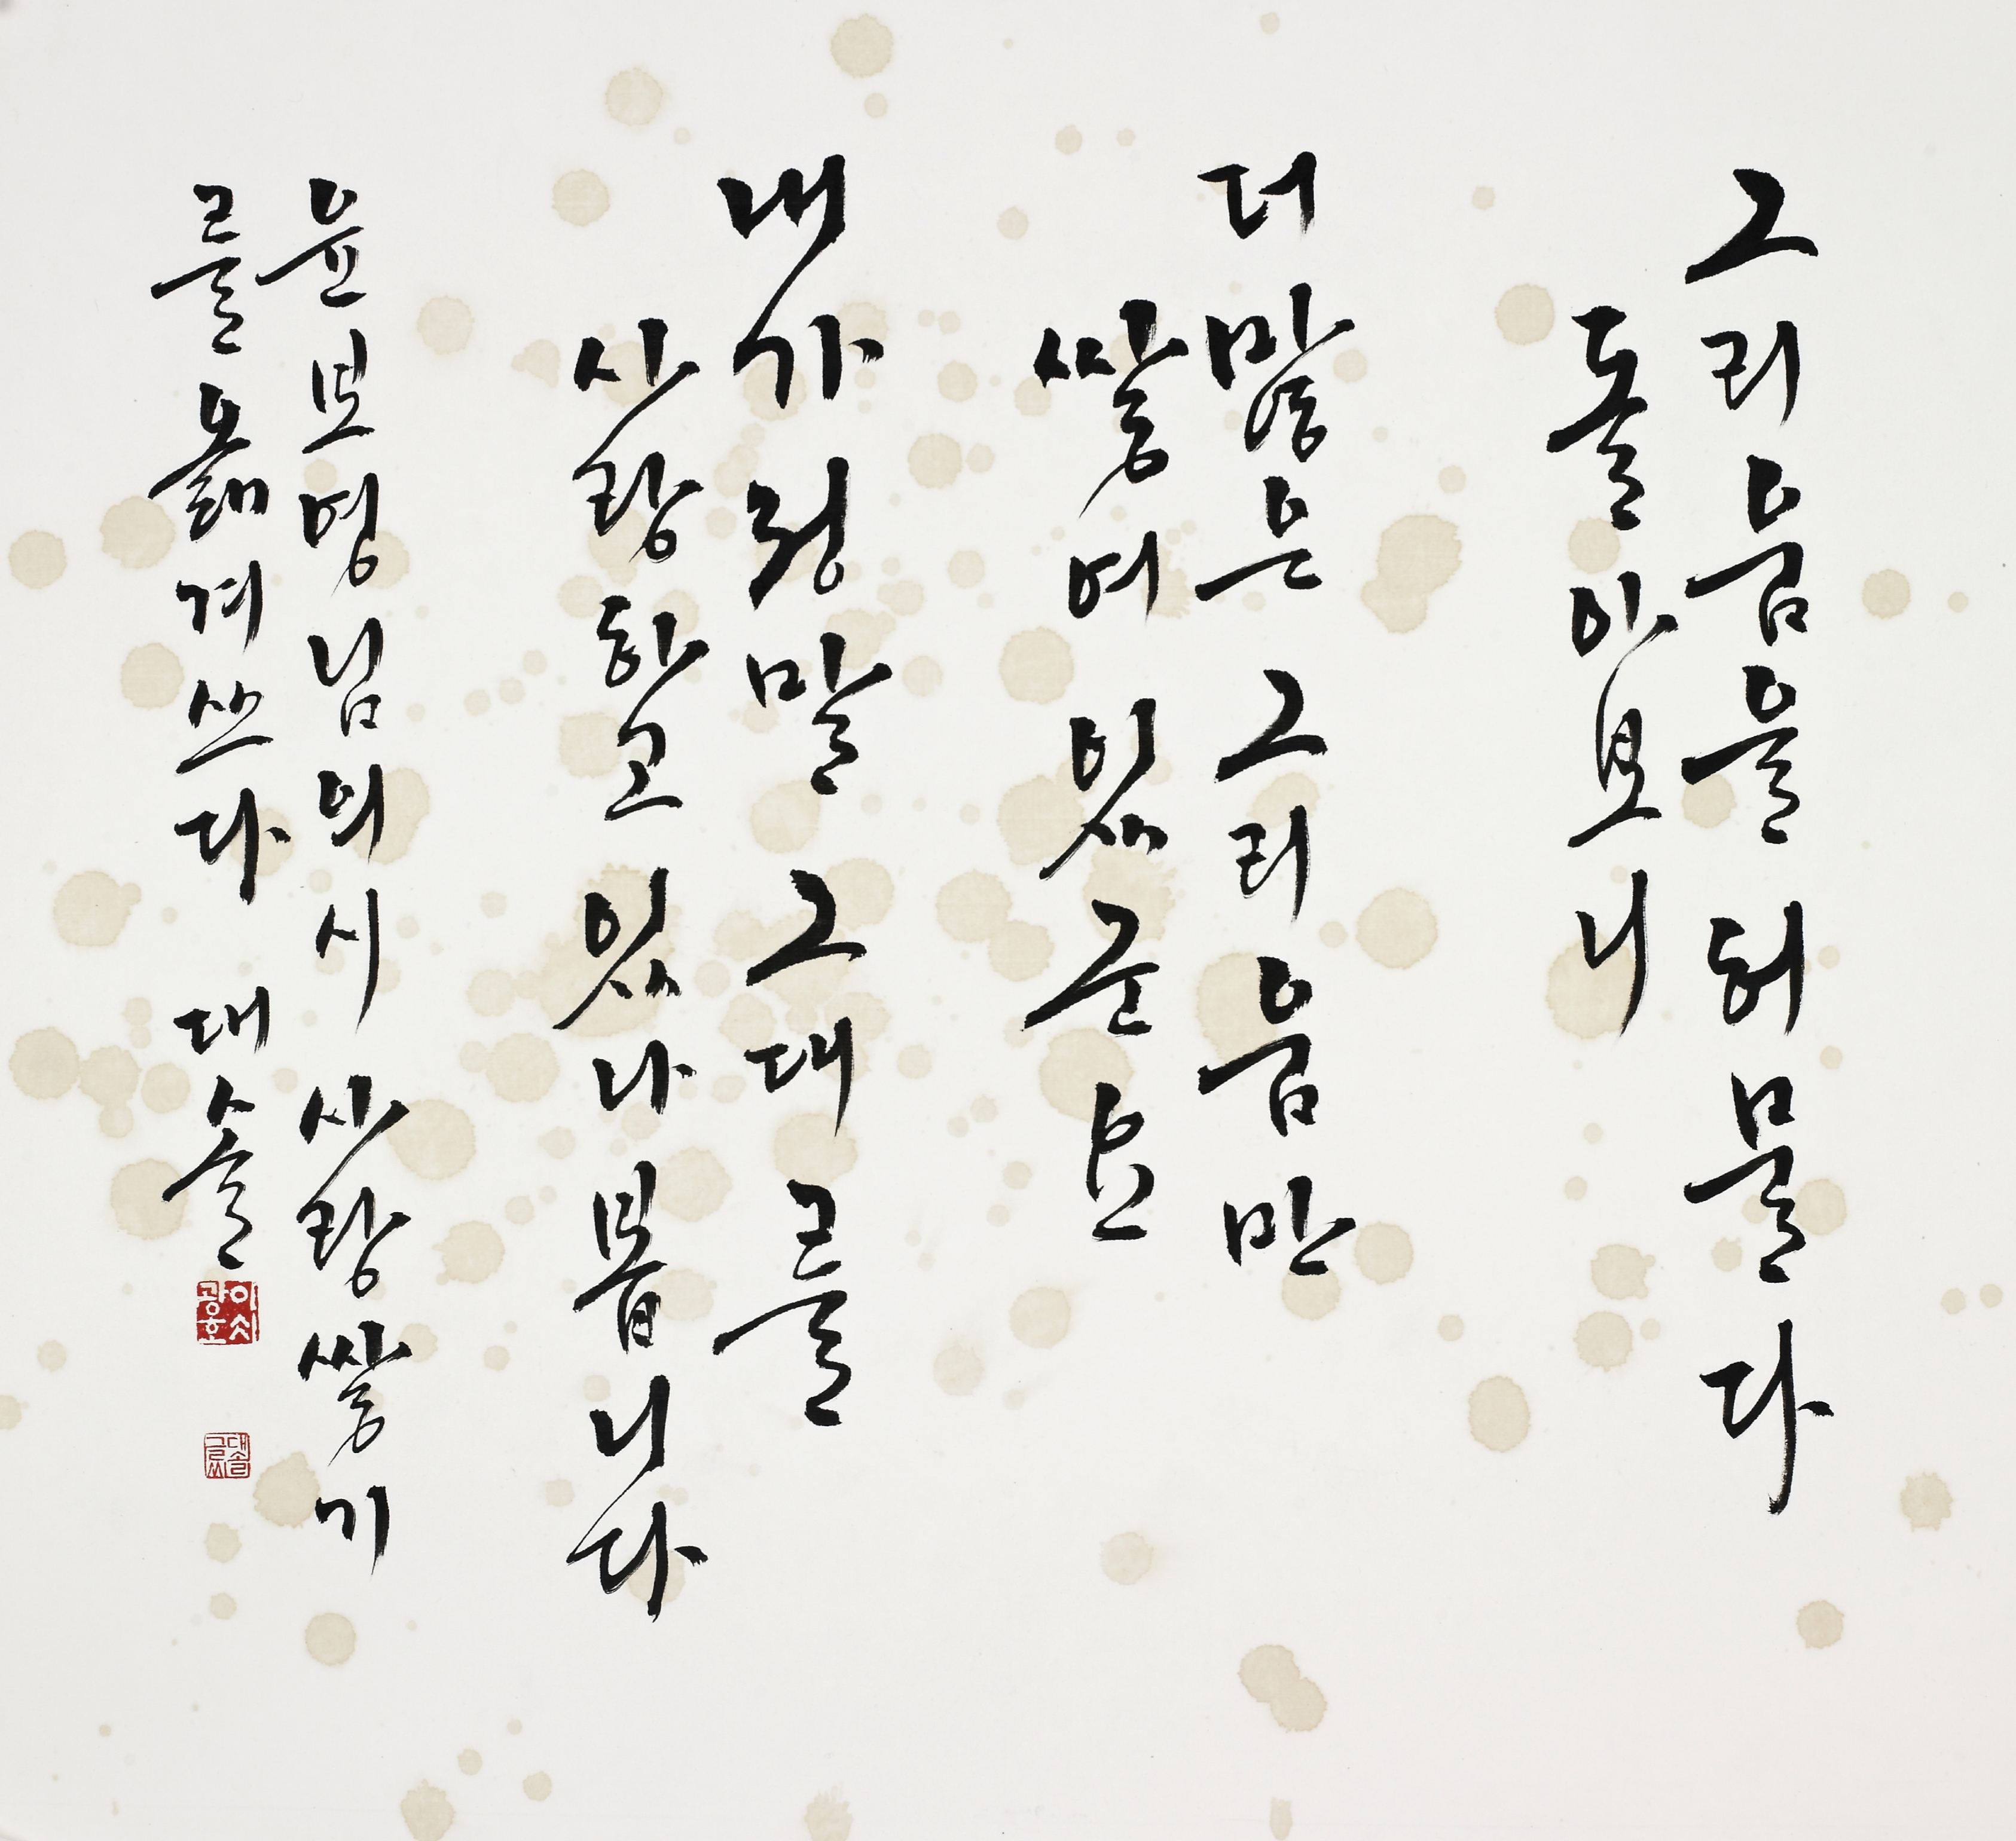 그리움을 허물다
돌아보니
더 많은 그리움만
쌓여 있군요
내가 정말 그대를
사랑하고 있나 봅니다
윤보영님의 시 사랑 쌓기
를 옮겨 쓰다 대솔
광호
대솔